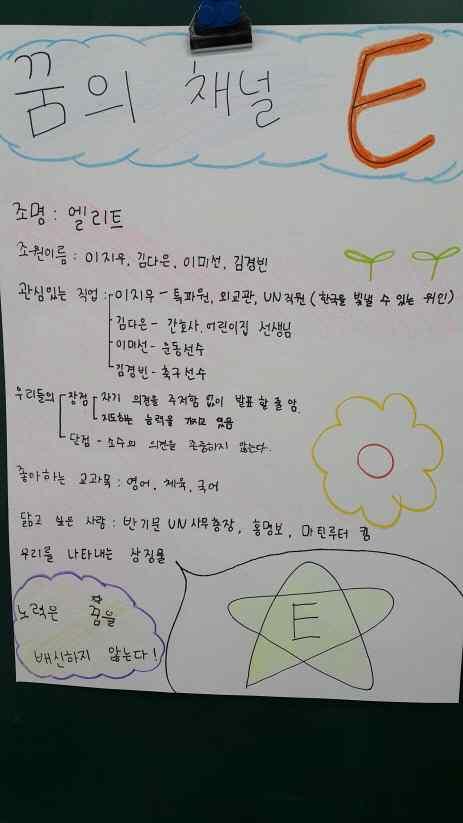 꿈의 채널 E
조명 : 엘리트
조원이름 : 이지우, 김다은, 이미선, 김경빈
관심있는 직업 : 이지우 - 특파원, 외교관, UN직원 (한국을 빛낼 수 있는 위인)
김다은 - 간호사, 어린이집 선생님
이미선 - 운동선수
김경빈 - 축구선수
우리들의 장점 자기 의견을 주저함 없이 발표 할 줄 암
지도하는 능력을 가지고 있음
단점 - 소수의 의견을 존중하지 않는다.
좋아하는 교과목 : 영어, 체육, 국어
닮고 싶은 사람 : 반기문 UN사무총장, 홍명보, 마틴루터 킹
우리를 나타내는 상징물
E
노력은 꿈을
배신하지 않는다!